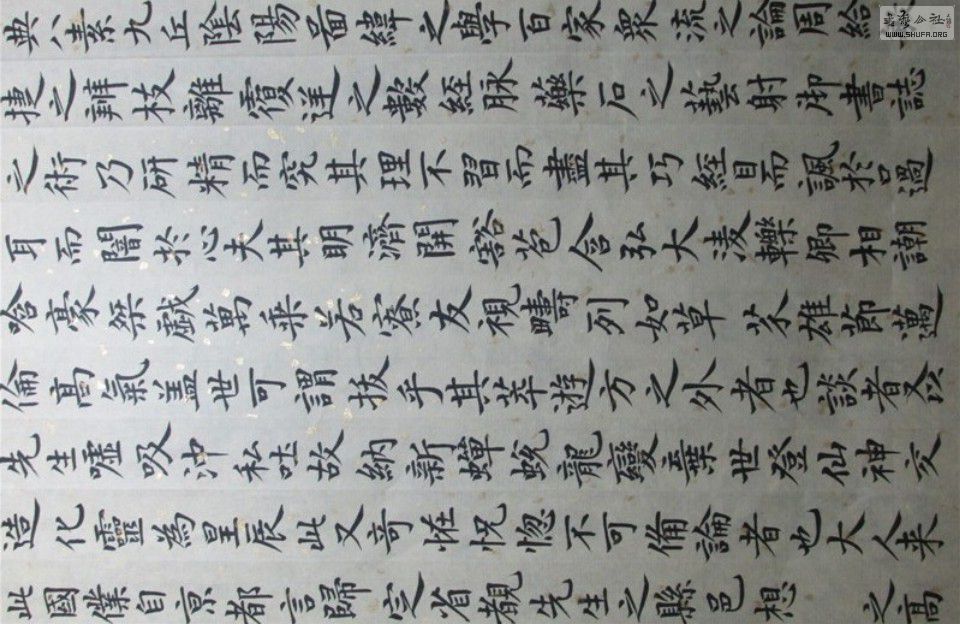 典八素九丘陰陽圖緯之學百家衆流之論周給
捷之辨枝離覆逆之數經脉藥石之藝射御書誌
之術乃研精而究其理不習而盡其巧經目而諷於口過
耳而闇於心夫其明濟開豁苞含弘大凌轢卿相謿
哈豪桀戲萬乗若寮友視疇列如草芥雄節邁
倫高氣盖世可謂拔乎其萃遊方之外者也談者又以
先生噓吸沖和吐故納新蟬蛻龍變棄世登仙神交
造化靈為星辰此又奇怪怳惚不可備論者也大人来
此國僕自京都言歸定省覩先生之縣邑想之高
書藝公社
WWW.SHUFA.ORG